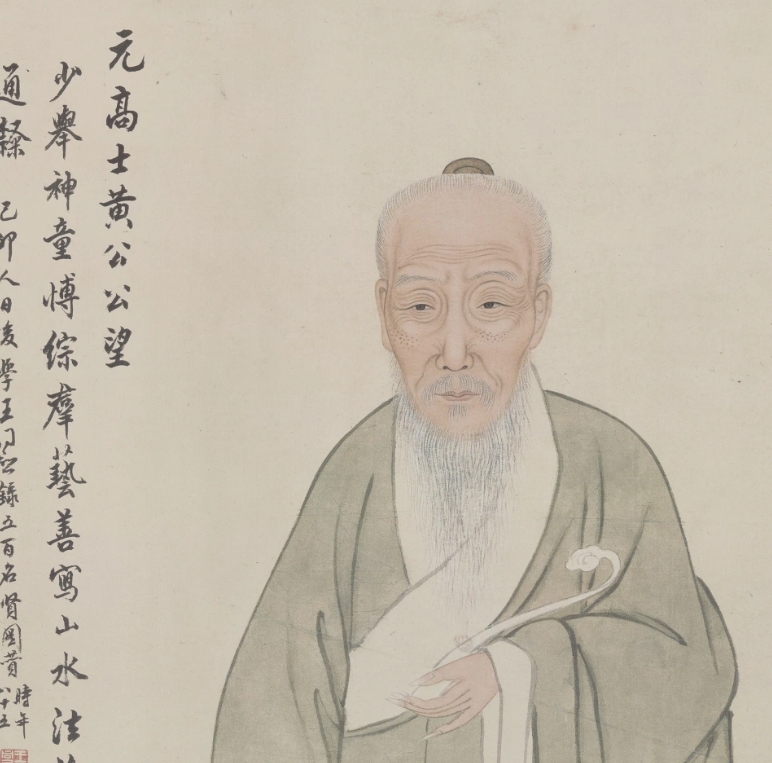 元高士黄公公望
少舉神童博綜羣藝善寫山水法
通隸
己卯人日後學王同愈錄五百名賢圖贊
時年八十五